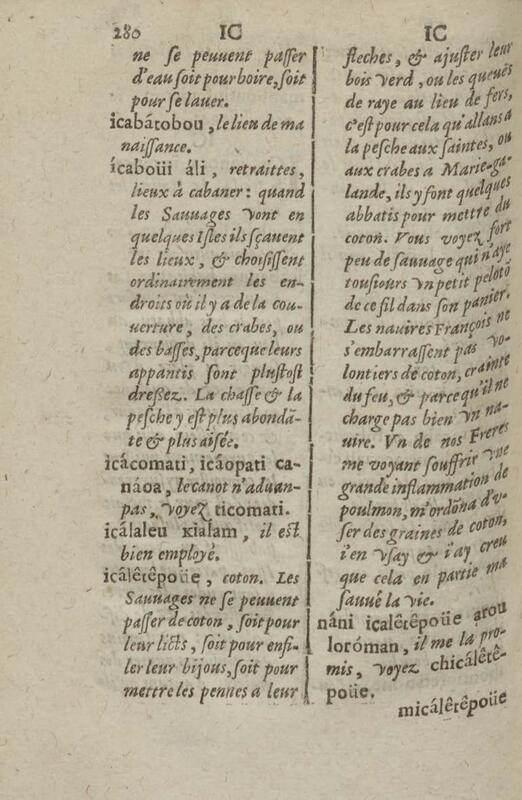 280 IC IC
ne se peuuent passer
d'eau soit pour boire, soit
pour se lauer.
icabátobou, le lieu de ma
naissance.
ícaboüi áli, retraittes,
lieux à cabaner: quand
les Sauuages vont en
quelques Isles ils sçauent
les lieux, & choisissent
ordinairement les en-
droits où il y a de la cou-
uerture, des crabes, ou
des basses, parceque leurs
appantis sont plustost
dreßez. La chasse & la
pesche y est plus abondã-
te & plus aisée.
icácomati, icáopati ca-
náoa, le canot n'aduan-
pas, voyez ticomati.
icálaleu kialam, il est
bien employé.
icálêtêpoüe, coton. Les
Sauuages ne se peuuent
passer de coton, soit pour
leur licts, soit pour enfi-
ler leur bijous, soit pour
mettre les pennes a leur
fleches, & ajuster leur
bois verd, ou les queuës
de raye au lieu de fers,
c'est pour cela qu'allans a
la pesche aux saintes, ou
aux crabes a Marie-ga-
lande, ils y font quelques
abbatis pour mettre du
coton. Vous voyez fort
peu de sauuage qui n'aye
tousiours vn petit pelotõ
de ce fil dans son panier.
Les nauires François ne
s'embarrassent pas vo-
lontiers de coton, crainte
du feu, & parce qu'il ne
charge pas bien vn na-
uire. Vn de nos Freres
me voyant souffrir vne
grande inflammation de
poulmon, m'ordõna d'v-
ser des graines de coton,
i'en vsay & i'ay creu
que cela en partie ma
sauué la vie.
náni icalêtêpoüe arou
loróman, il me la pro-
mis, voyez chicálêtê-
poüe.
micálêtêpoüe